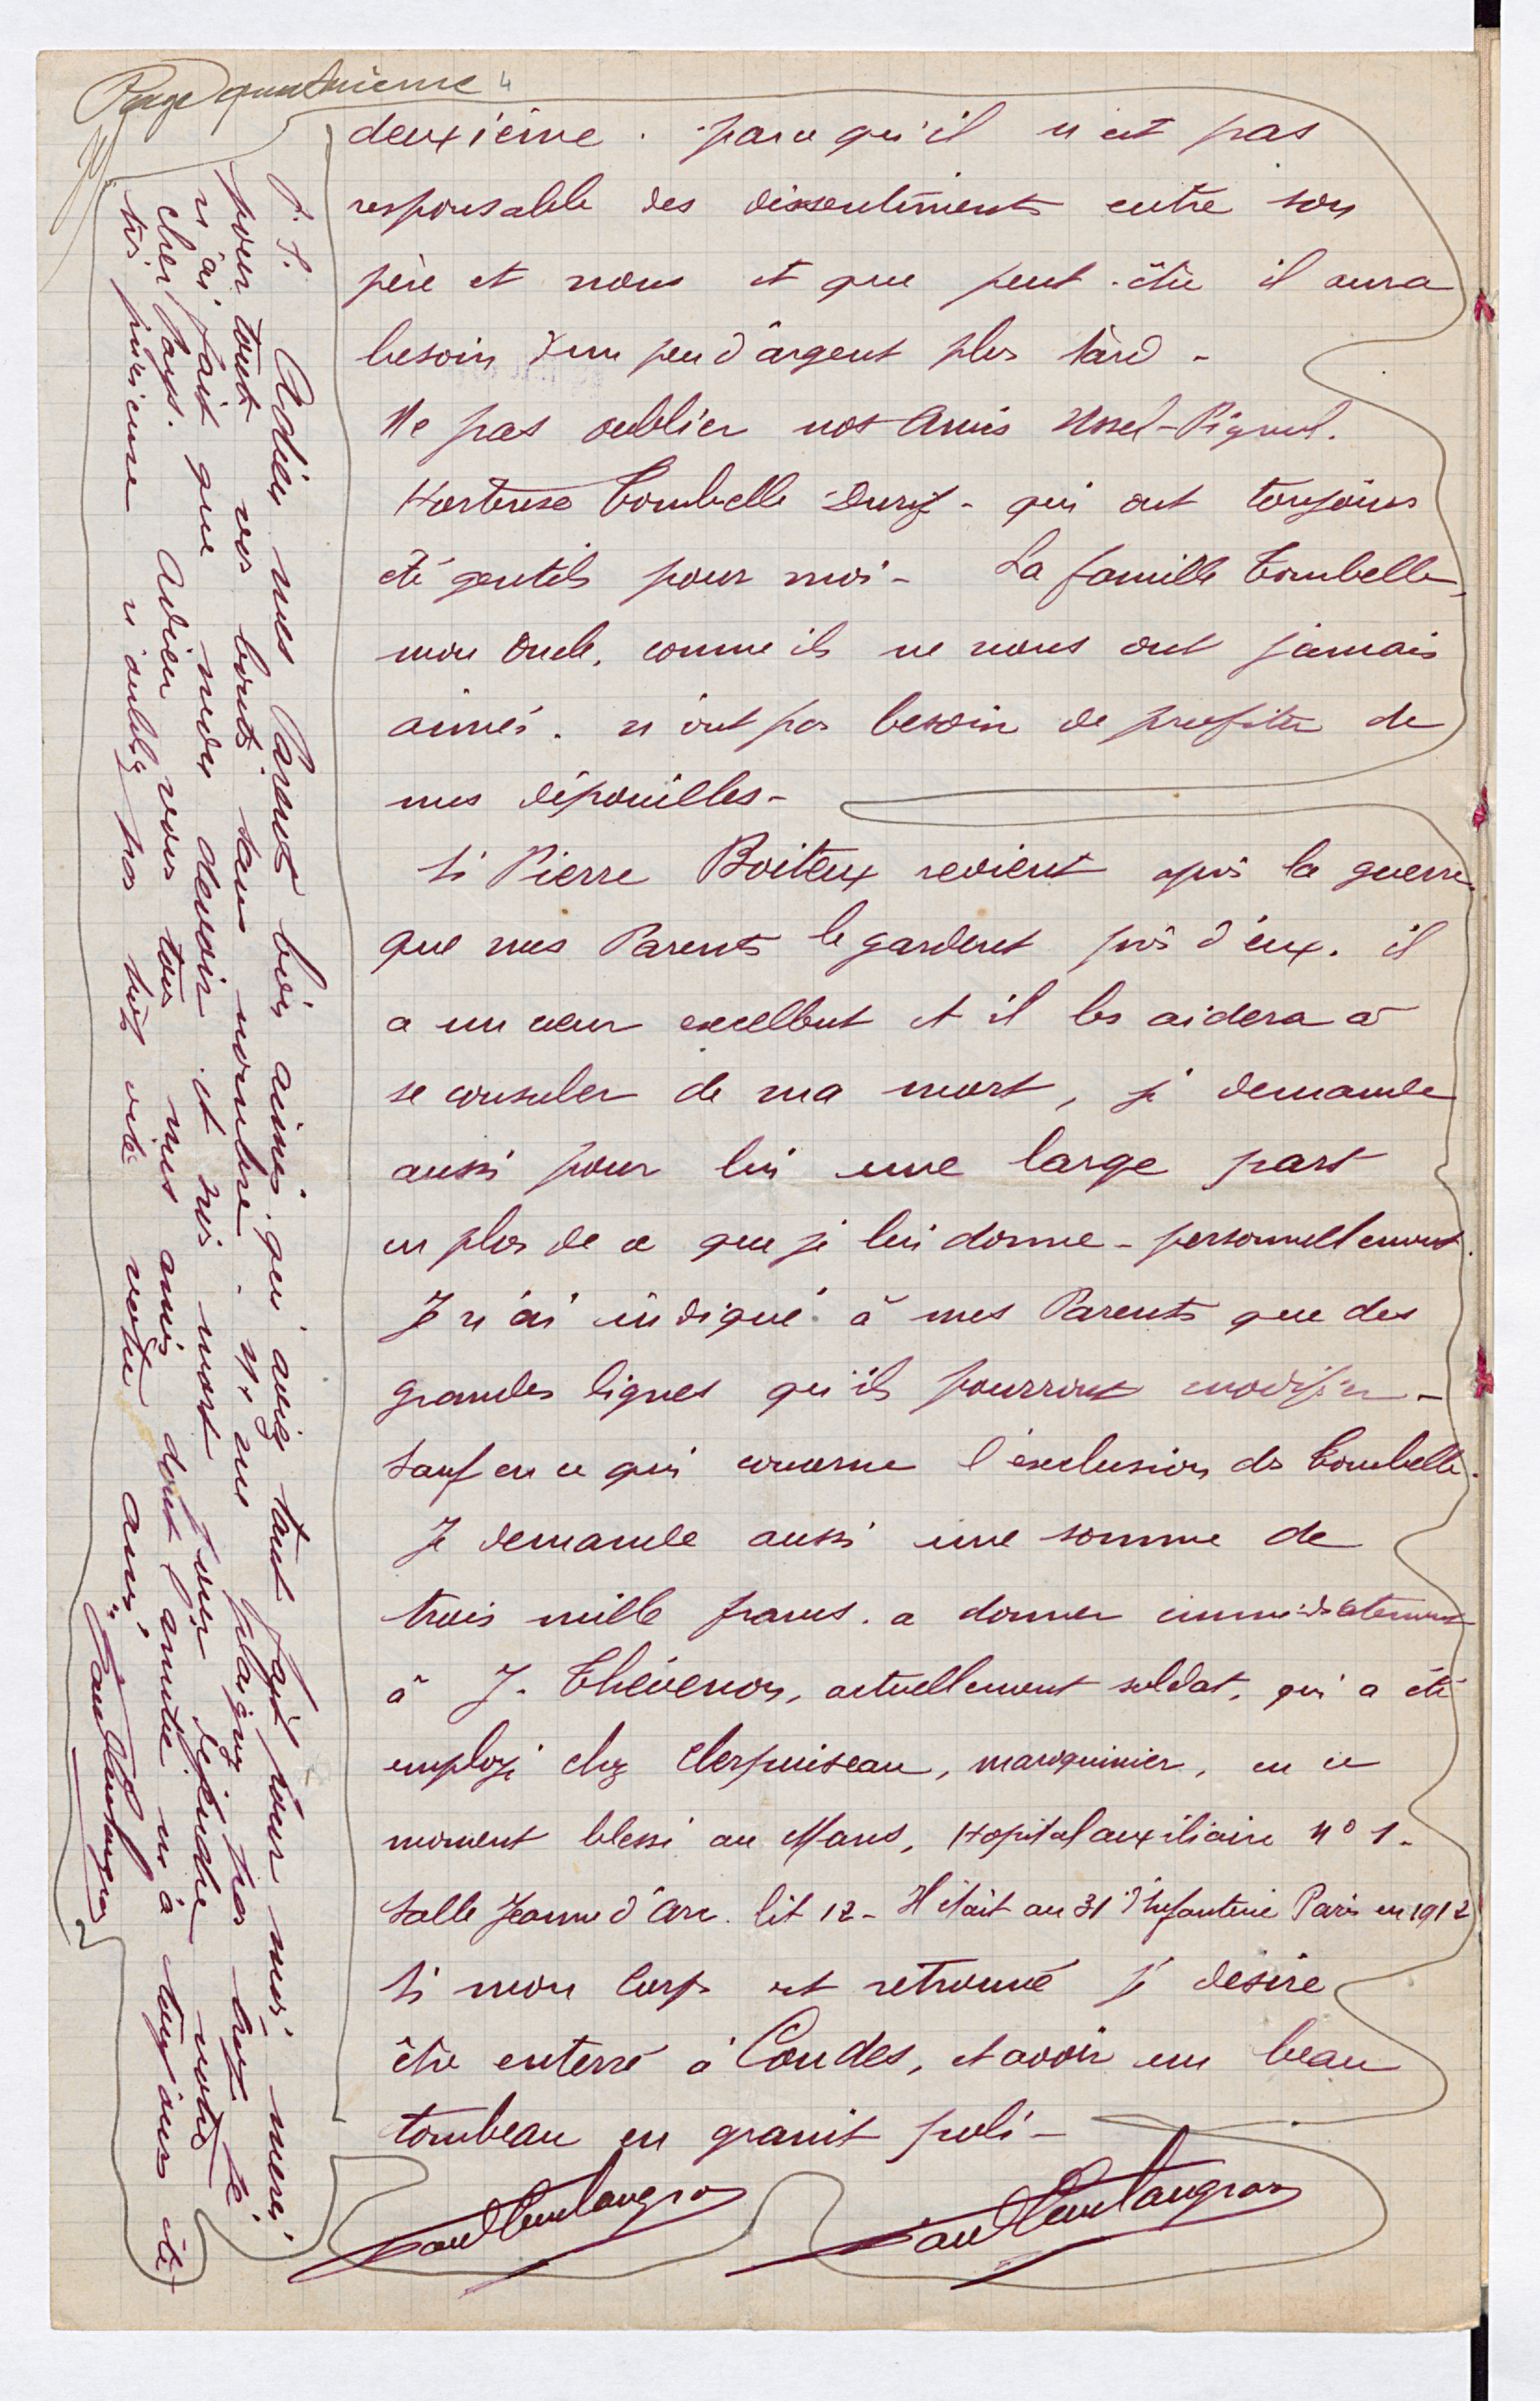 Page quatrième 4
deuxième. parce qu'il n'est pas
responsable des dissentiments entre son
père et nous et que peut-être il aura
besoin d'un peu d'argent plus tard -
Ne pas oublier nos Amis
Hortense Tombelle - qui ont toujours
été gentils pour moi - La famille Tombelle,
mon Oncle, comme ils ne nous ont jamais
aimés. n'ont pas besoin de profiter de
mes dépouilles -
Si Pierre Boiteux revient après la guerre.
que mes Parents le gardent près d'eux. il
a un cœur excellent et il les aidera à
se consoler de ma mort, je demande
aussi pour lui une large part
en plus de ce que je lui donne - personnellement.
Je n'ai indiqué à mes Parents que des
grandes lignes qu'ils pourront modifier -
sauf en ce qui concerne l'exclusion des Tombelle.
Je demande aussi une somme de
trois mille francs. a donner immédiatement
à J. Thévenon, actuellement soldat, qui a été
employé chez Clerpuiseau, maroquinier, en ce
moment blessé au Mans, Hopital auxiliaire N° 1.
Salle Jeanne d'Arc. lit 12 - Il était au 31 d'Infanterie Paris en 1912
Si mon Corps est retrouvé je désire
être enterré à Coudes, et avoir un beau
tombeau en granit poli -
Adieu mes Parents bien aimés. qui avez tant fait pour moi, merci
pour tout vos bontés sans nombre. Ne me plaignez pas trop je
n'ai fait que mon devoir et suis mort pour défendre notre
cher Pays. Adieu vous tous mes amis dont l'amitié m'a toujours été
très précieuse n'oubliez pas trop vite votre ami.